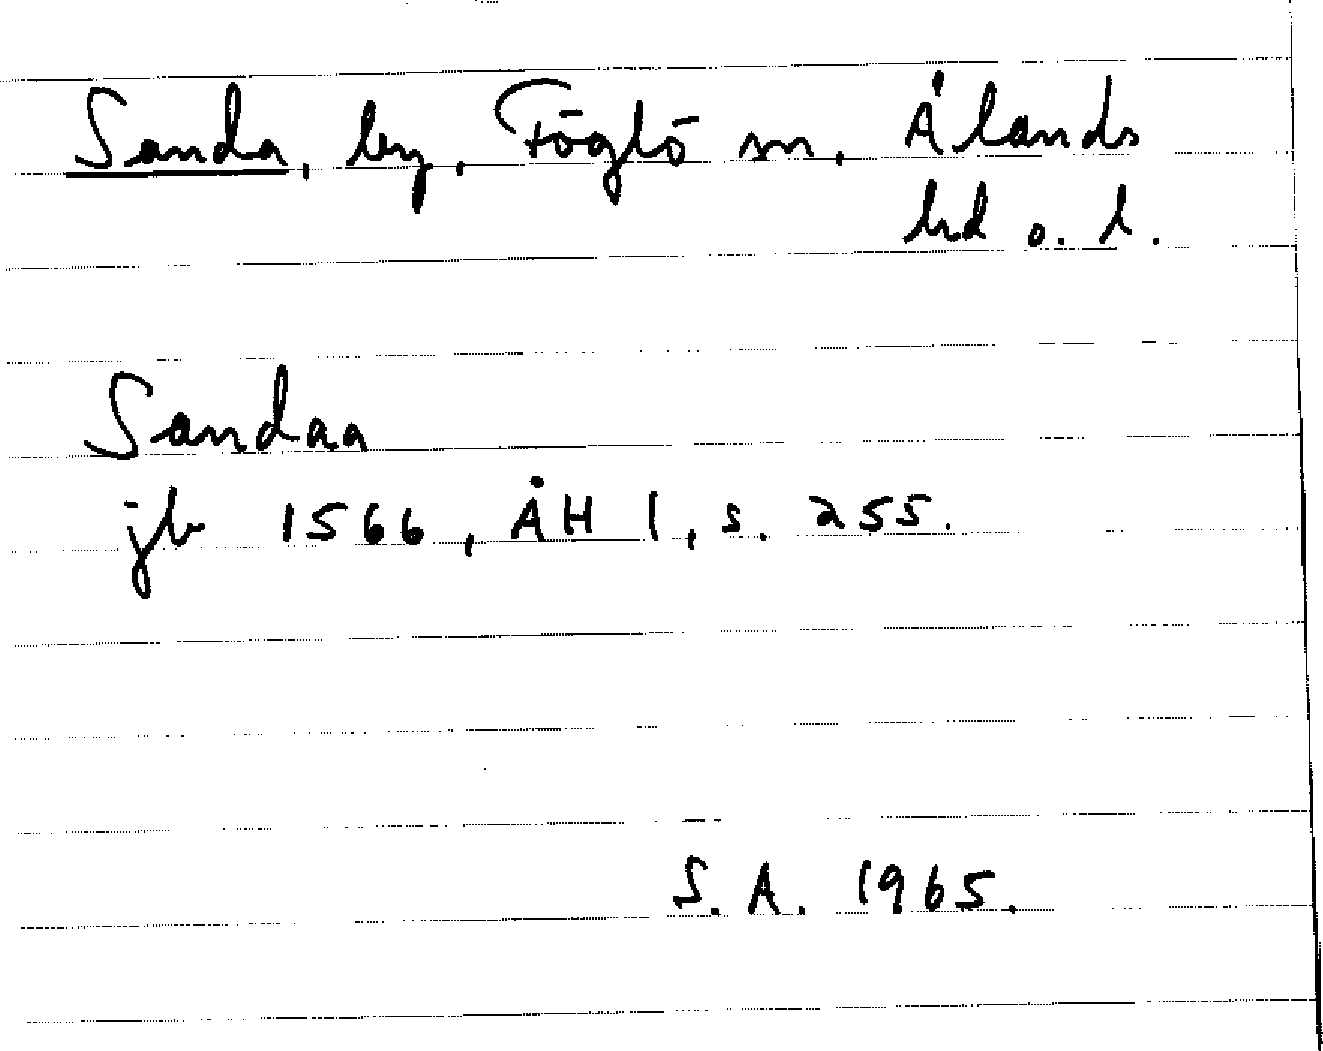 Sanda, by, Föglö sn, Ålands
hd o. l.
Sandaa
jb 1566, ÅH 1, s. 255.
S. A. 1965.